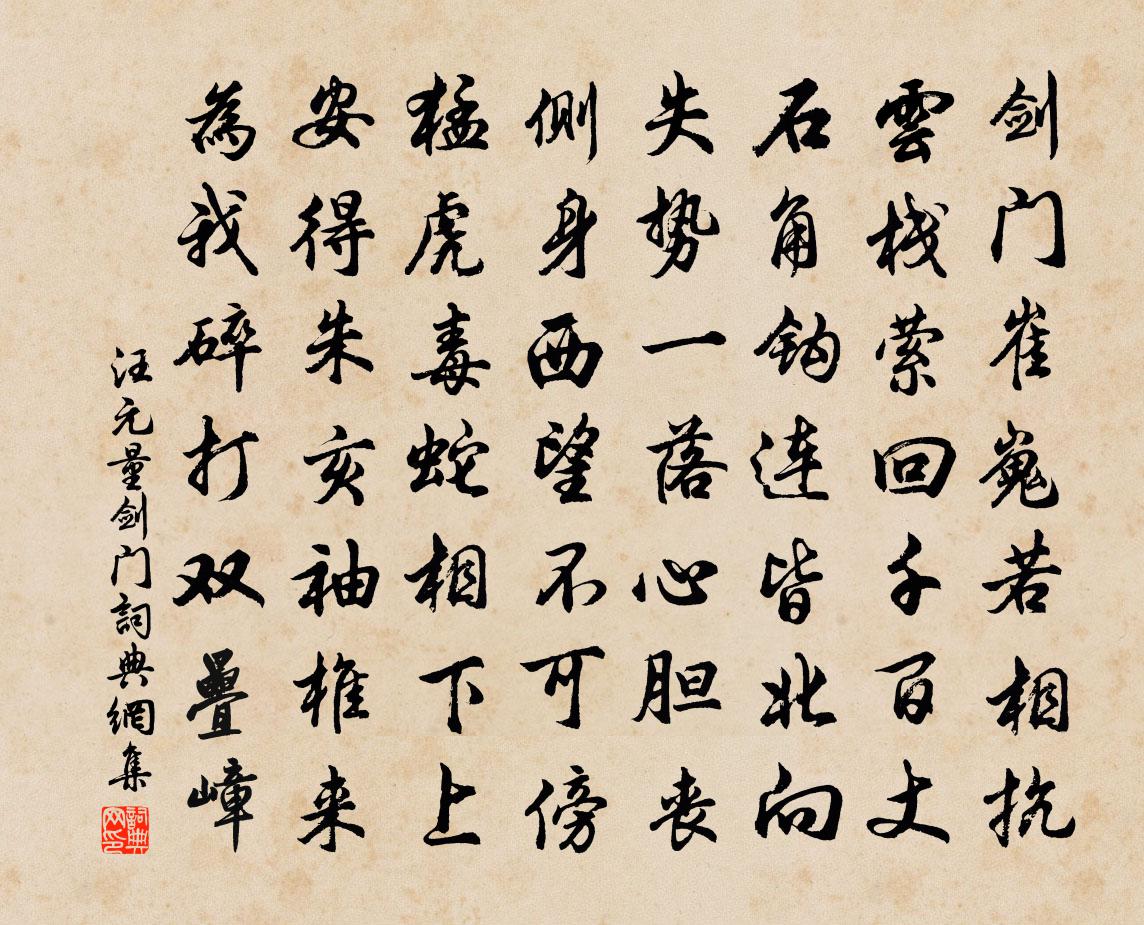 剑门崔嵬若相抗
雲栈萦回千百丈
石角钩连皆北向
失势一落心胆丧
侧身西望不可傍
猛虎毒蛇相下上
安得朱亥袖椎来
為我碎打双疊嶂
汪元量剑门詞典網集
詞典网印